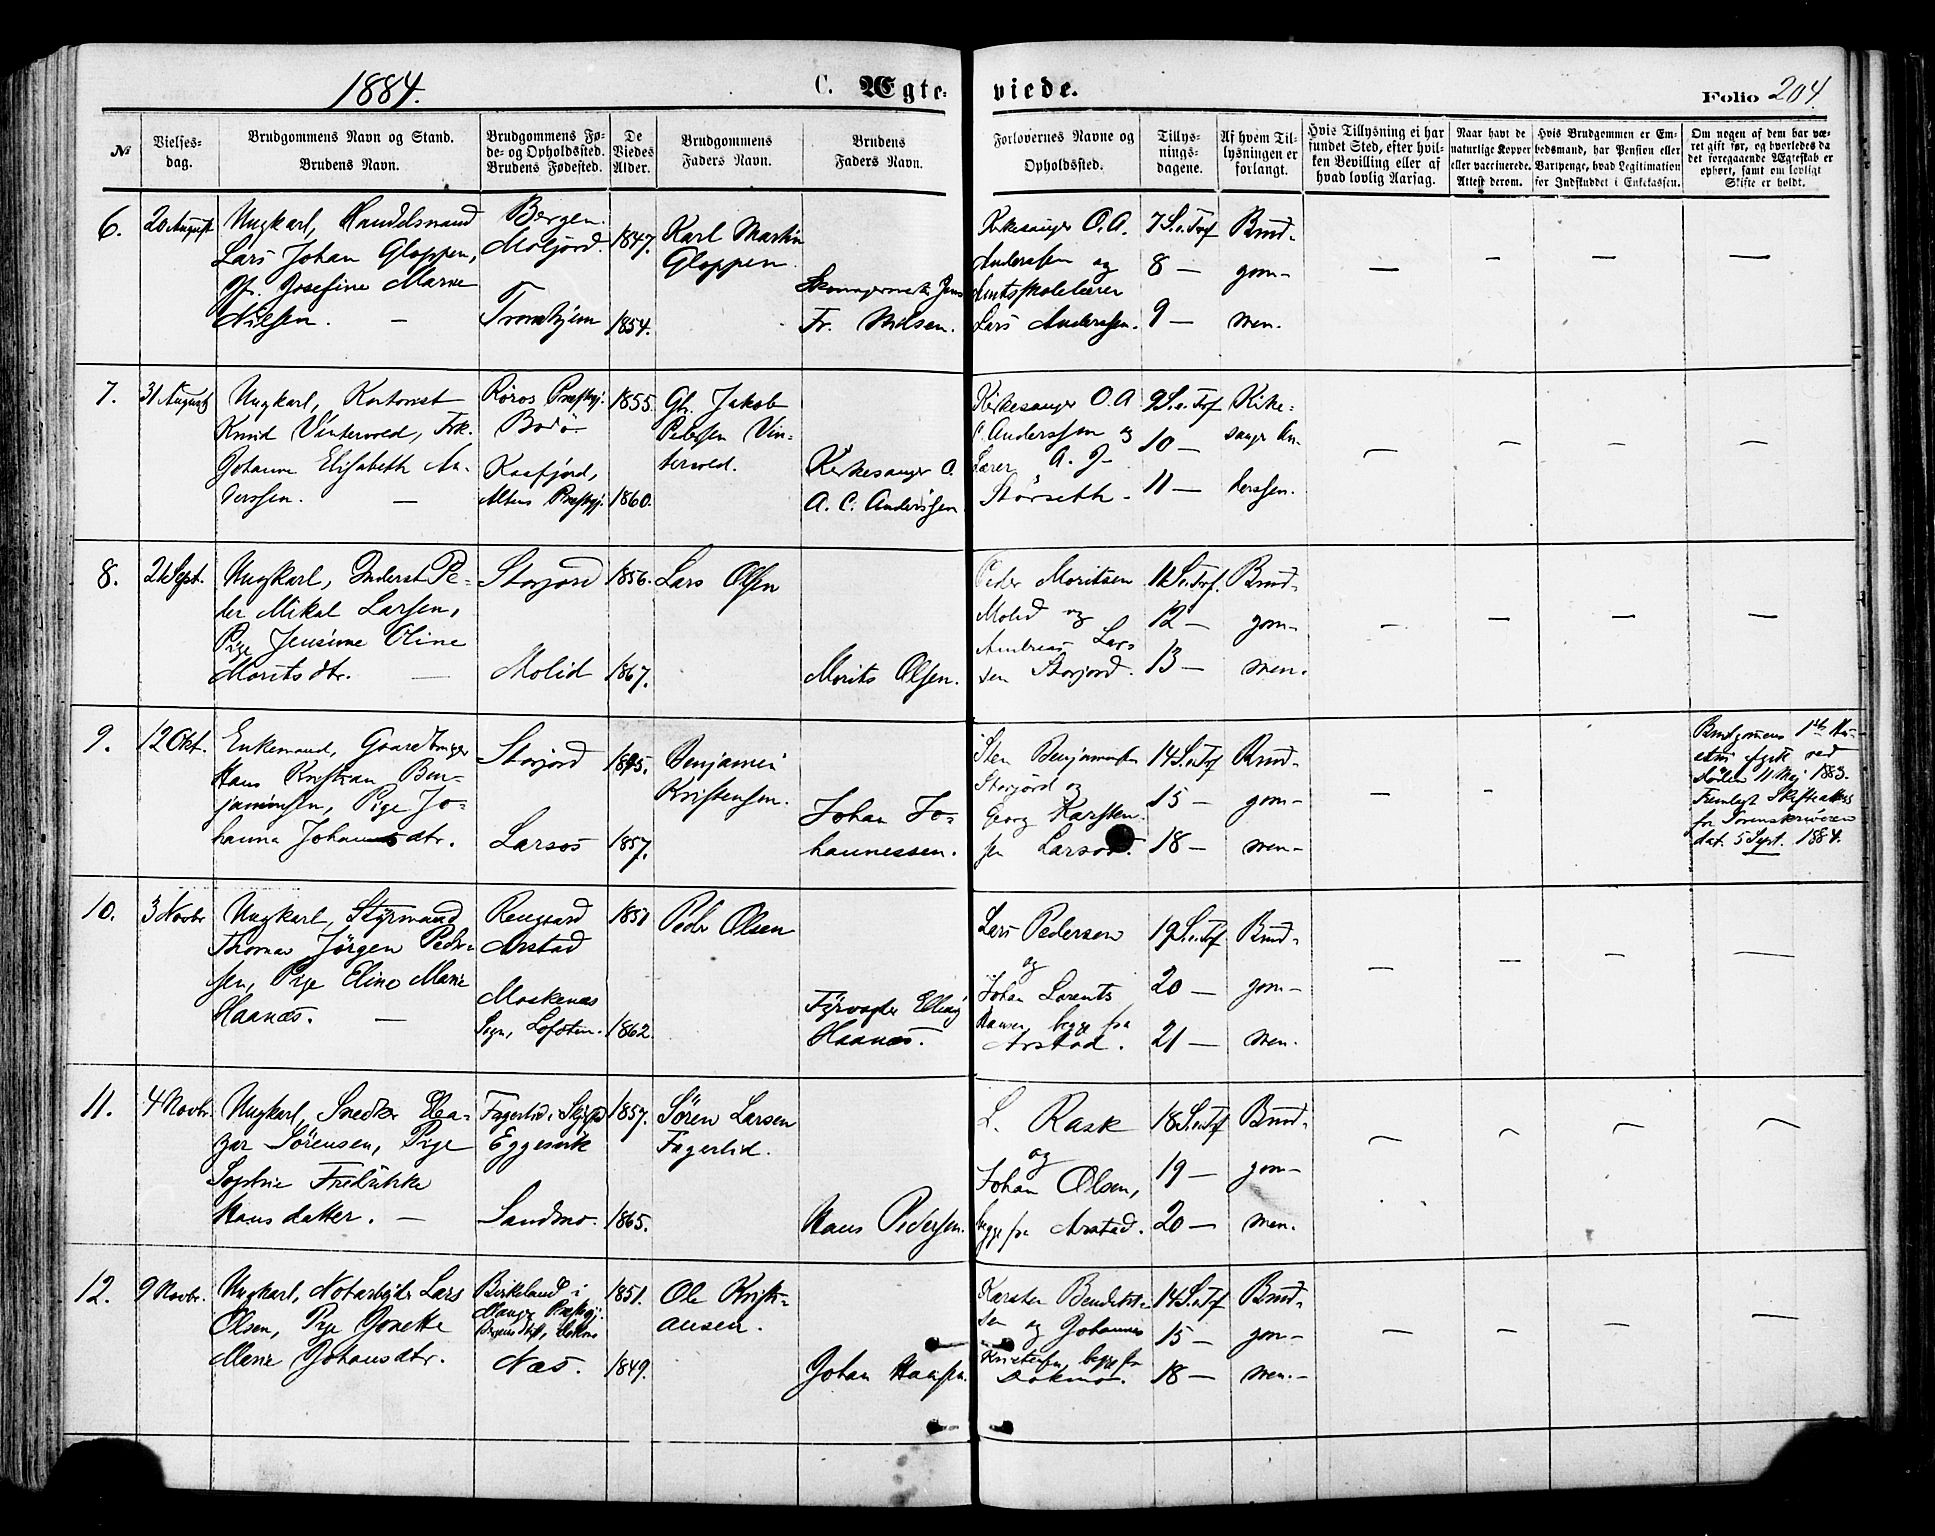 1884.
C. Ægte-
viede.
Folio 204
№
Vielses-
dag.
Brudgommens Navn og Stand.
Brudens Navn.
Brudgommens Fø-
de- og Opholdssted.
Brudens Fødested.
De
Viedes
Alder.
Brudgommens
Faders Navn.
Brudens
Faders Navn.
Forlovernes Navne og
Opholdssted.
Tillys-
nings-
dagene.
Af hvem Til-
lysningen er
forlangt.
Hvis Tillysning ei har
fundet Sted, efter hvil-
ken Bevilling eller af
hvad lovlig Aarsag.
Naar havt de
naturlige Kopper
eller vaccinerede.
Attest derom.
Hvis Brudgommen er Em-
bedsmand, har Pension eller
Vartpenge, hvad Legitimation
for Indskuddet i Enkekassen.
Om nogen af dem har væ-
ret gift før, og hvorledes da
det foregaaende Ægteskab er
ophørt, samt om lovligt
Skifte er holdt.
6.
20 August
Ungkarl, Handelsmand
Lars Johan Gloppen,
Josefine Marie
Nilsen. —
Bergen.
Moljord.
Tromhjem
1847.
1854.
Karl Martin
Gloppen
Skomagermester Jens
Fr. Nilsen.
Kirkesanger O. A.
Anderssen og
Amtsskolelærer
Lars Anderssen.
7 S. e. Tref
8 —
9 —
Brud-
gom-
men.
— — — —
7.
31 August
Ungkarl, Kontorist
Knud Vintervold, Frk.
Johanne Elisabeth An-
derssen. —
Røros Præstegj.
Bodø
Kaafjord,
Altens Præstegj.
1855.
1860.
Gb. Jakob
Pedersen Vin-
tervold.
Kirkesanger O.
A. C. Anderssen
Kirkesanger O. A
C. Anderssen og
Lærer A. J.
Størseth.
9 S. e. Tref
10 —
11 —
Kirke-
sanger An-
derssen.
— — — —
8.
21 Sept.
Ungkarl, Inderst Pe-
der Mikal Larsen,
Pige Jensine Oline
Moritsdtr. —
Storjord
Molid
1856.
1867.
Lars Olsen
Morits Olsen.
Peder Moritsen
Molid og
Andreas Lars
sen Storjord.
11 S. e. Tref.
12 —
13 —
Brud-
gom-
men.
— — — —
9.
12 Okt.
Enkemand, Gaardbruger
Hans Kristian Ben-
jaminsen, Pige Jo-
hanna Johannesdtr.
Storjord
Larsos
1857.
Benjamin
Kristensen.
Johan Jo-
hannessen.
Sten Benjaminsen
Storjord og
Georg Karsten-
sen Larsos.
14 S. e. Tref
15 —
18 —
Brud-
gom-
men-
— —
Brudgomens 1ste
ved
Døden 11 Maj 1883.
Fremlagt Skifteattest
for Sorenskriveren
dat. 5 Sept. 1884.
10.
3 Novbr
Ungkarl, Styrmand
Thomas Jørgen Peder-
sen, Pige Eline Marie
Haanæs. —
Rengaard
Arstad
Moskenæs
Sogn, Lofoten.
1851
1862.
Peder Olsen
Fyrvogter Elling
Haanæs.
Lars Pedersen
og
Johan Lorents
Hansen, begge fra
Arstad.
19 S. e. Tref
20 —
21 —
Brud-
gom-
men.
— — — —
11.
4 Novbr.
Ungkarl, Snedker Elea-
zar Sørensen, Pige
Sophie Fredrikke
Hansdatter. —
Fagerlid i
Eggesvik
Sandmo.
1857.
1865.
Søren Larsen
Fagerlid.
Hans Pedersen.
L. Rask
og
Johan Olsen,
begge fra Arstad.
18 S. e. Tref
19 —
20 —
Brud-
gom-
men.
— — — —
12.
9 Novbr.
Ungkarl, Notarbejder Lars
Olsen, Pige Jonette
Marie Johansdtr.
Birkeland i
Manger Præstegj.
Næs.
1851.
1849.
Ole Kristi-
ansen.
Johan Hansen.
Karsten Benedikt-
sen og Johannes
Kristensen, begge fra
Dokmo.
14 S. e. Tref
15 —
18 —
Brud-
gom-
men.-
— — — —